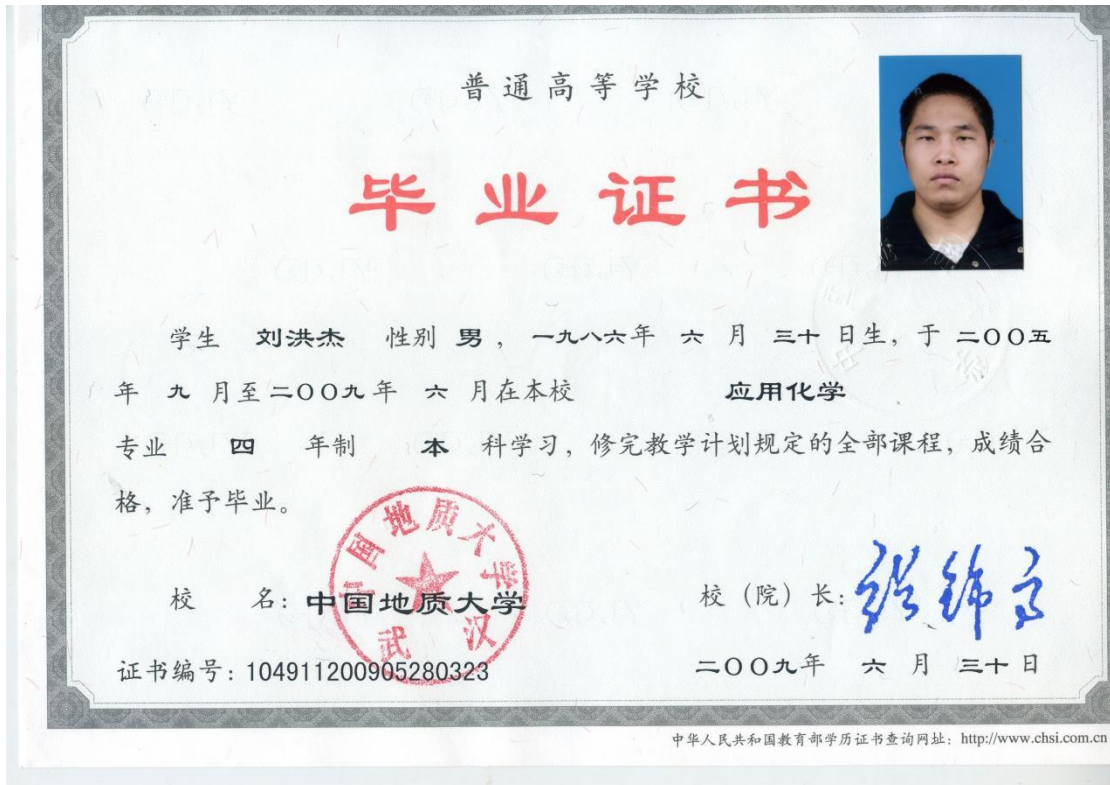 普通高等学校
毕业证书
学生 刘洪杰 性别 男，一九八六年 六 月 三十 日生，于 二〇〇五
年 九 月至二〇〇九年 六 月在本校 应用化学
专业 四 年制 本 科学习，修完教学计划规定的全部课程，成绩合
格，准予毕业。
中国地质大学
武汉
校 名：中国地质大学
校（院）长：张锦高
证书编号：104911200905280323
二〇〇九年 六 月 三十 日
中华人民共和国教育部学历证书查询网址：http://www.chsi.com.cn